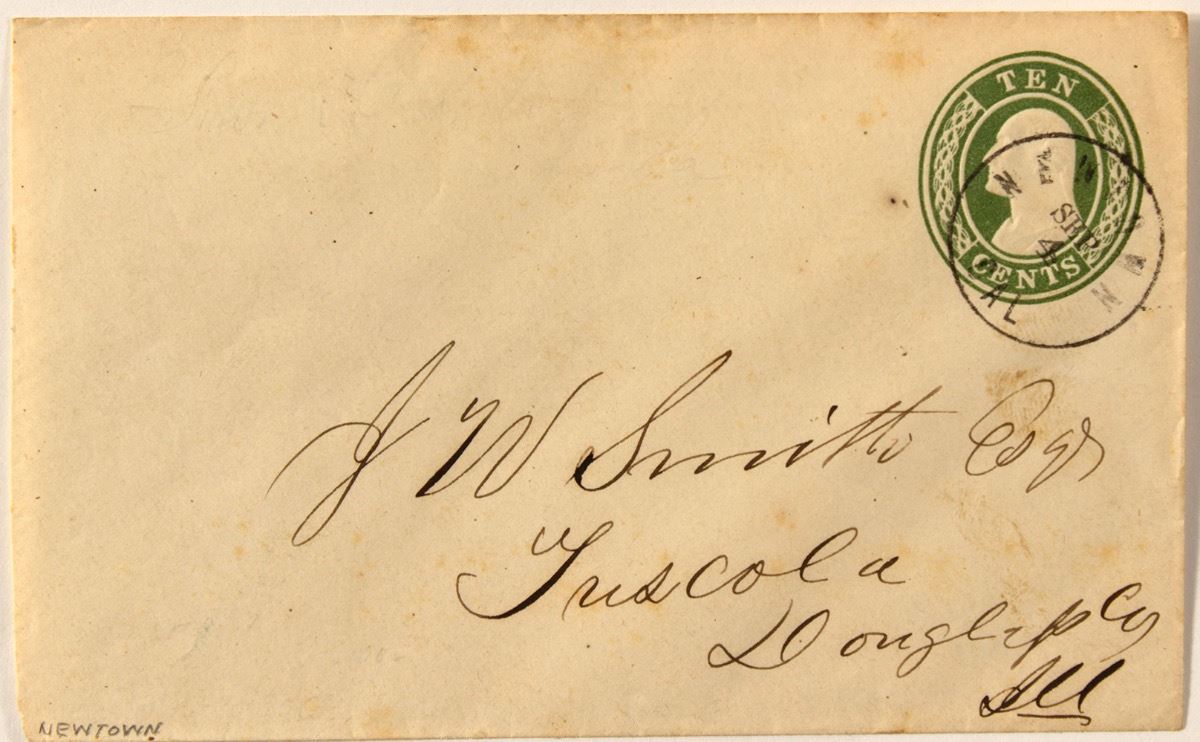 TEN
CENTS
NEWTOWN
SEP
4
CAL
J W Smith Esqr
Tuscola
Douglass Co
Ill
NEWTOWN